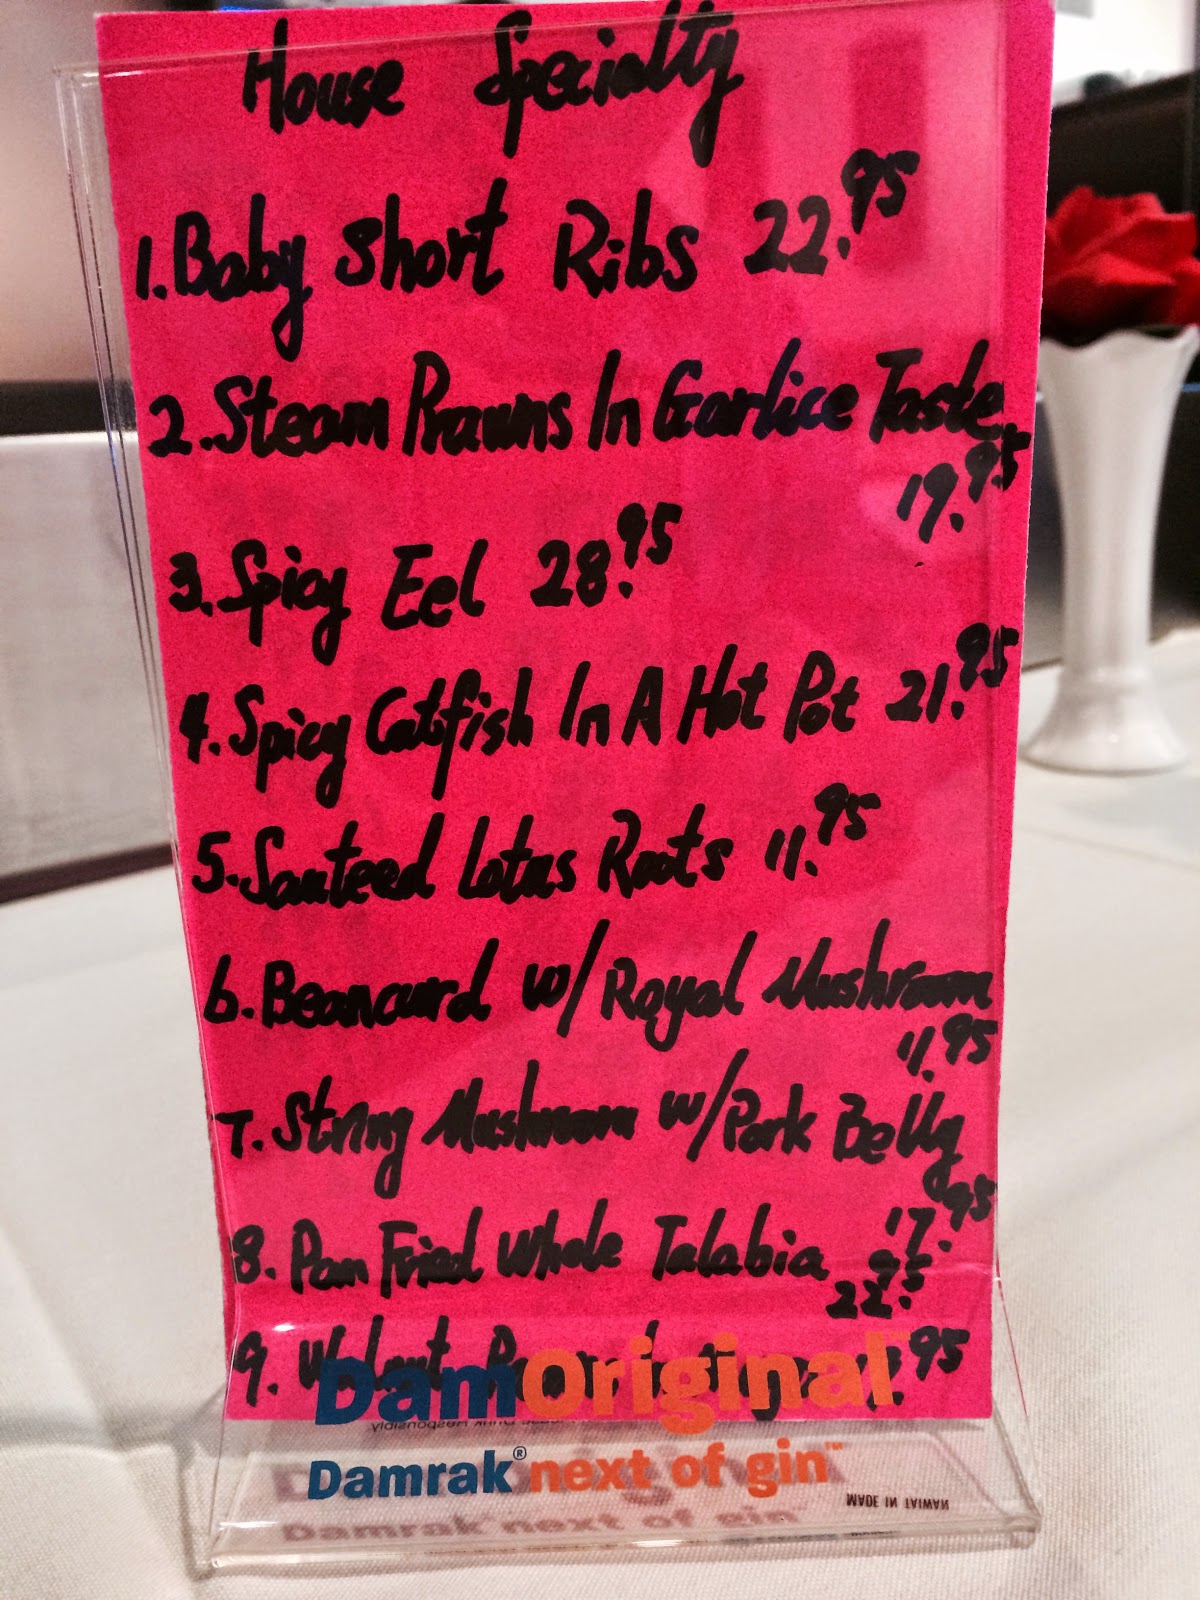 House Specialty
1. Baby Short Ribs 22.95
2. Steam Prawns In Garlice Taste
19.95
3. Spicy Eel 28.95
4. Spicy Catsfish In A Hot Pot 21.95
5. Sauteed Lotus Roots 11.95
6. Beancurd w/ Royal Mushroom
11.95
7. String Mushroom w/ Pork Belly
17.95
8. Pan Fried Whole Talabia
22.95
9. Walnut .95
DamOriginal™
Damrak® next of gin™
MADE IN TAIWAN